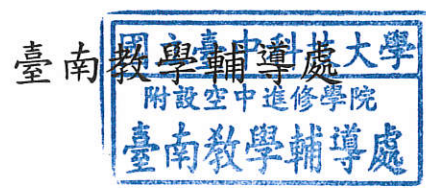 臺南教學輔導處
國立臺中科技大學
附設空中進修學院
臺南教學輔導處